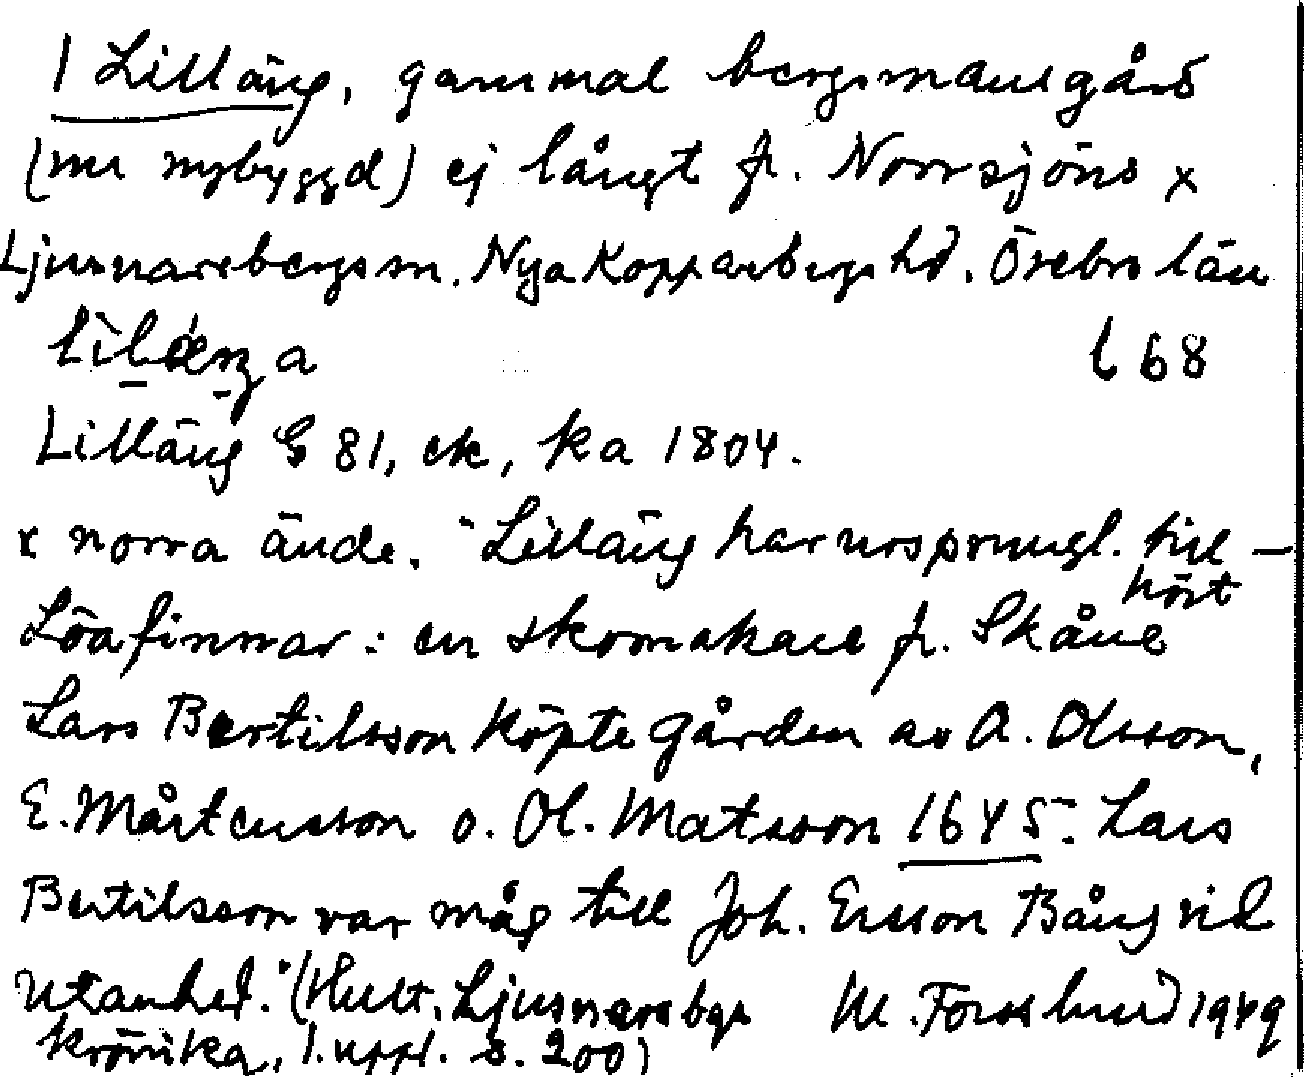 1 Lilläng, gammal bergsmansgård
(nu nybyggd) ej långt fr. Norrsjöns x
Ljusnarsbergs sn. Nya Kopparbergs hd. Örebro län
l 68
Lilläng G 81, ek, ka 1804.
x norra ände. "Lilläng har ursprungl. till-
hört
Löafinnar: en skomakare fr. Skåne
Lars Bertilsson köpte gården av A. Olsson,
E. Mårtensson o. Ol. Matsson 1645. Lars
Bertilsson var måg till Joh. Ersson Bång vid
Utanhed." (Hult, Ljusnarsbgs M. Forslund 1949
krönika, 1. uppl. s. 200)